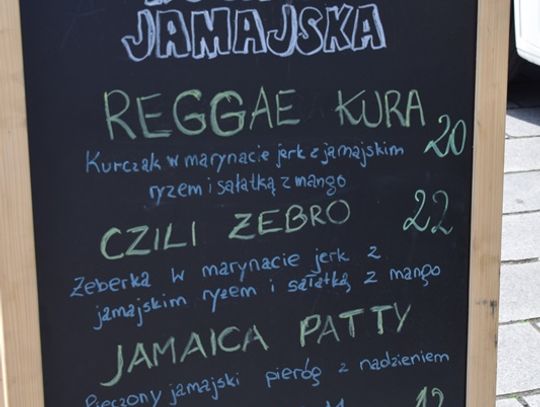 JAMAJSKA
REGGAE KURA
20
Kurczak w marynacie jerk z jamajskim
ryzem i sałatką z mango
CZILI ZEBRO 22
Zeberka w marynacie jerk z
jamajskim ryzem i sałatką z mango
JAMAICA PATTY
Pieczony jamajski pieróg z nadzieniem
12